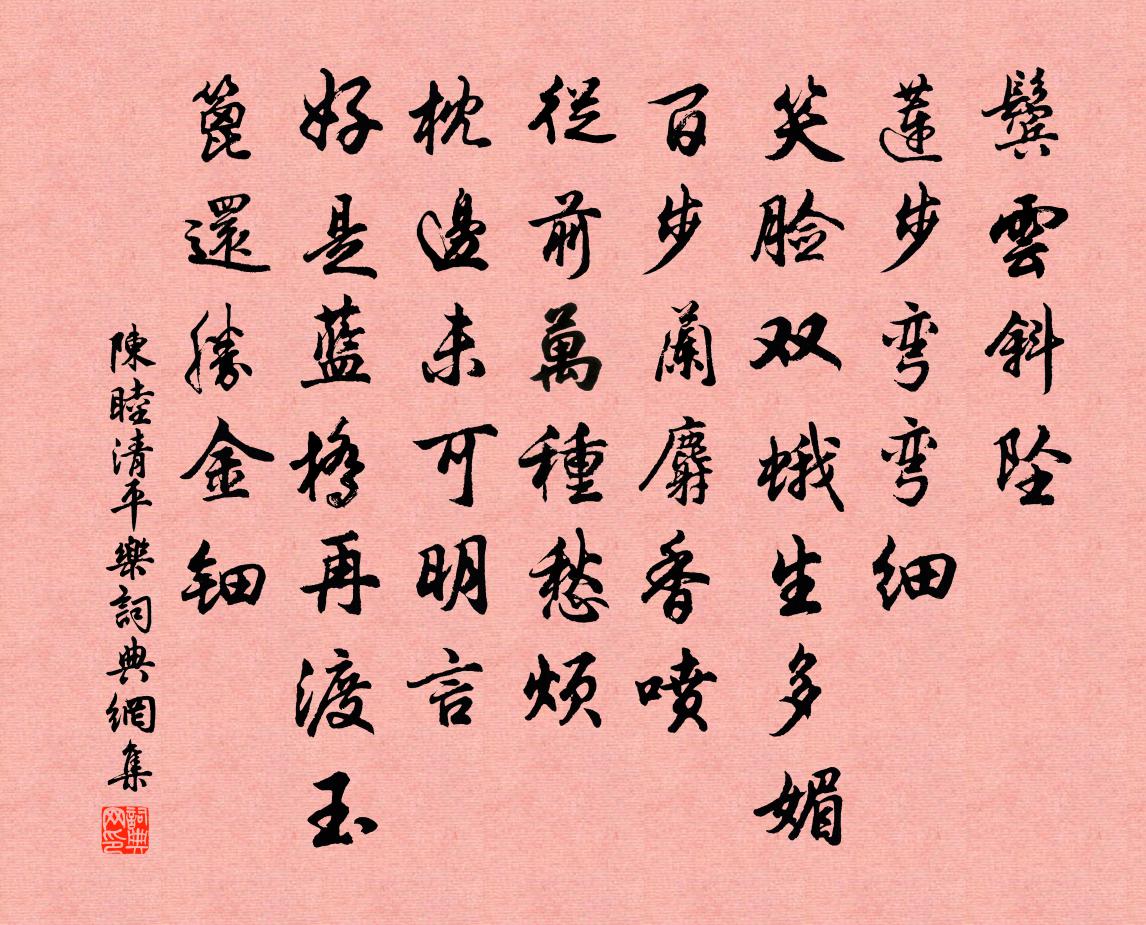 鬢雲斜坠
蓮步弯弯细
笑脸双蛾生多媚
百步蘭麝香喷
從前萬種愁烦
枕邊未可明言
好是藍橋再渡玉
篦還勝金钿
陳睦清平樂詞典網集
詞典网印